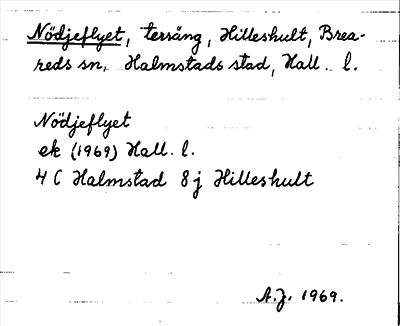 Nödjeflyet, terräng, Hilleshult, Brea-
reds sn, Halmstads stad, Hall. l.
Nödjeflyet
ek (1969) Hall. l.
4 C Halmstad 8 j Hilleshult
A.J. 1969.